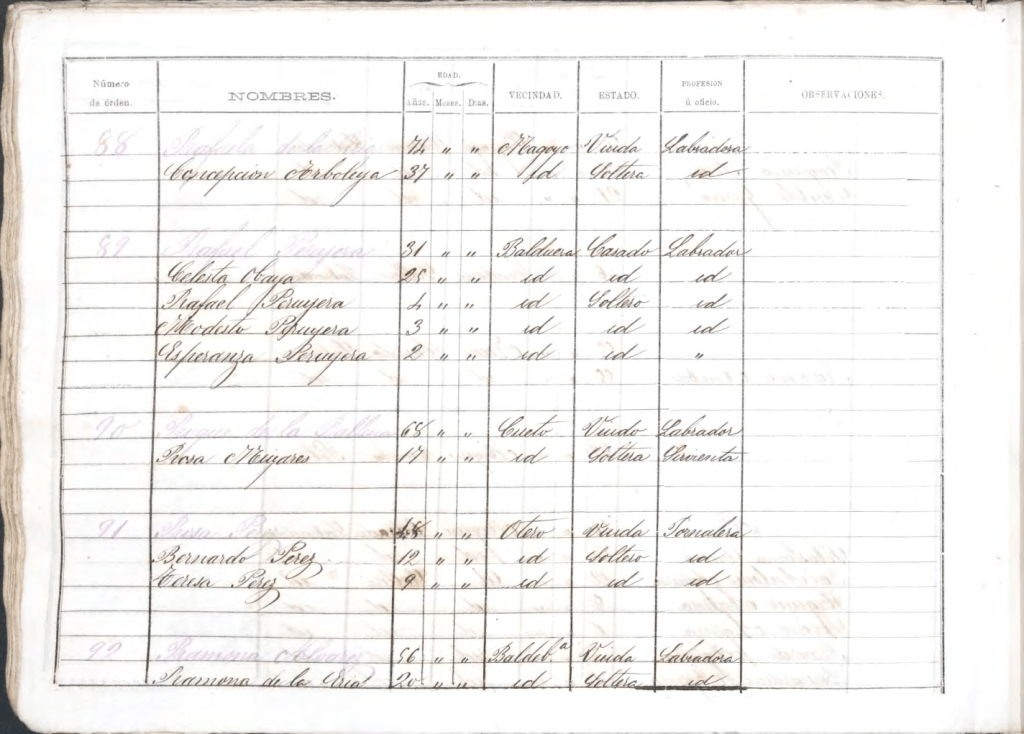 Número de órden. NOMBRES. EDAD. Años. Meses. Dias. VECINDAD. ESTADO. PROFESION ú oficio. OBSERVACIONES.
88 Rafaela de la 74 " " Magoyo Viuda Labradora
Concepcion Arboleya 37 " " id Soltera id
89 Rafael Peruyera 31 " " Balduera Casado Labrador
Celesta Obaya 25 " " id id id
Rafael Peruyera 4 " " id Soltero id
Modesto Peruyera 3 " " id id id
Esperanza Peruyera 2 " " id id "
90 de la 68 " " Cueto Viudo Labrador
Rosa Mijares 17 " " id Soltera Sirvienta
91 " " Otero Viuda Jornalera
Bernardo Perez 12 " " id Soltero id
Teresa Perez 9 " " id id id
92 Ramona Alvarez 56 " " Baldeb.ª Viuda Labradora
Ramona de la 20 " " id Soltera id